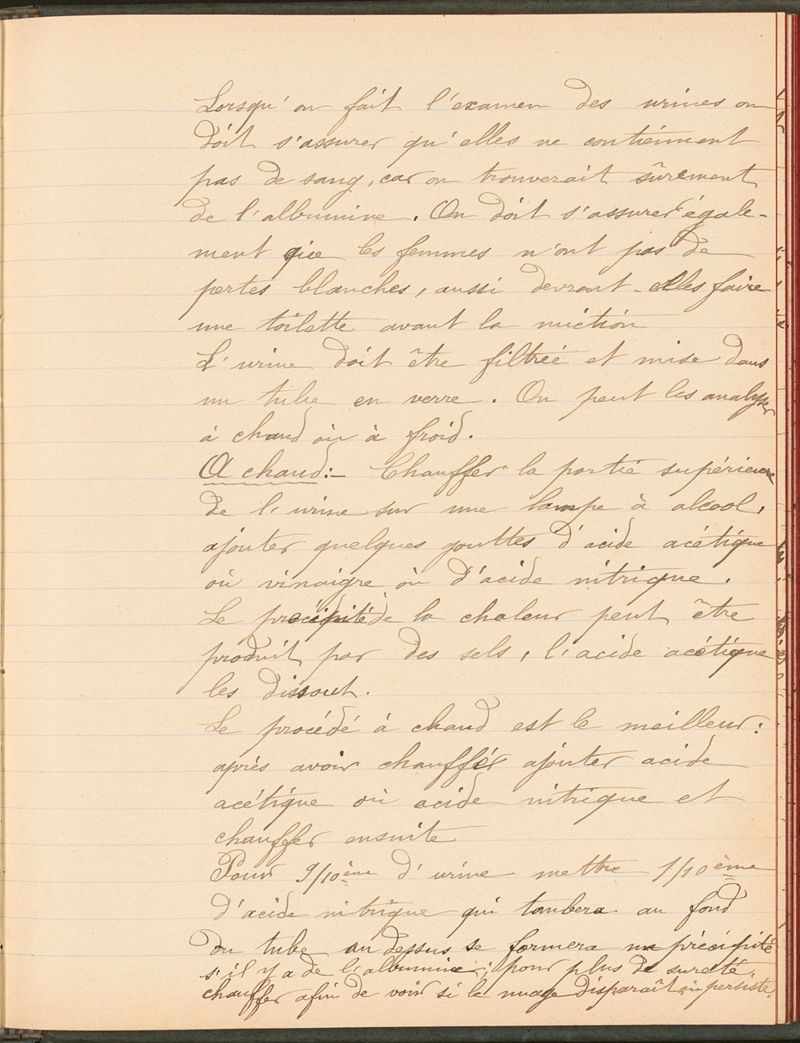 Lorsqu'on fait l'examen des urines on
doit s'assurer qu'elles ne contiennent
pas de sang, car on trouverait sûrement
de l'albumine. On doit s'assurer égale-
ment que les femmes n'ont pas de
pertes blanches, aussi devront-elles faire
une toilette avant la miction
L'urine doit être filtrée et mise dans
un tube en verre. On peut les analyser
à chaud où à froid.
A chaud:- Chauffer la partie supérieure
de l'urine sur une lampe à alcool,
ajouter quelques gouttes d'acide acétique
où vinaigre où d'acide nitrique.
Le précipité de la chaleur peut être
produit par des sels, l'acide acétique
les dissout.
Le procédé à chaud est le meilleur:
après avoir chauffér ajouter acide
acétique où acide nitrique et
chauffer ensuite
Pour 9/10ème d'urine mettre 1/10ème
d'acide nitrique qui tombera au fond
du tube au dessus se formera un précipité
s'il y a de l'albumine; pour plus de sureté,
chauffer afin de voir si le nuage disparaît où persiste.